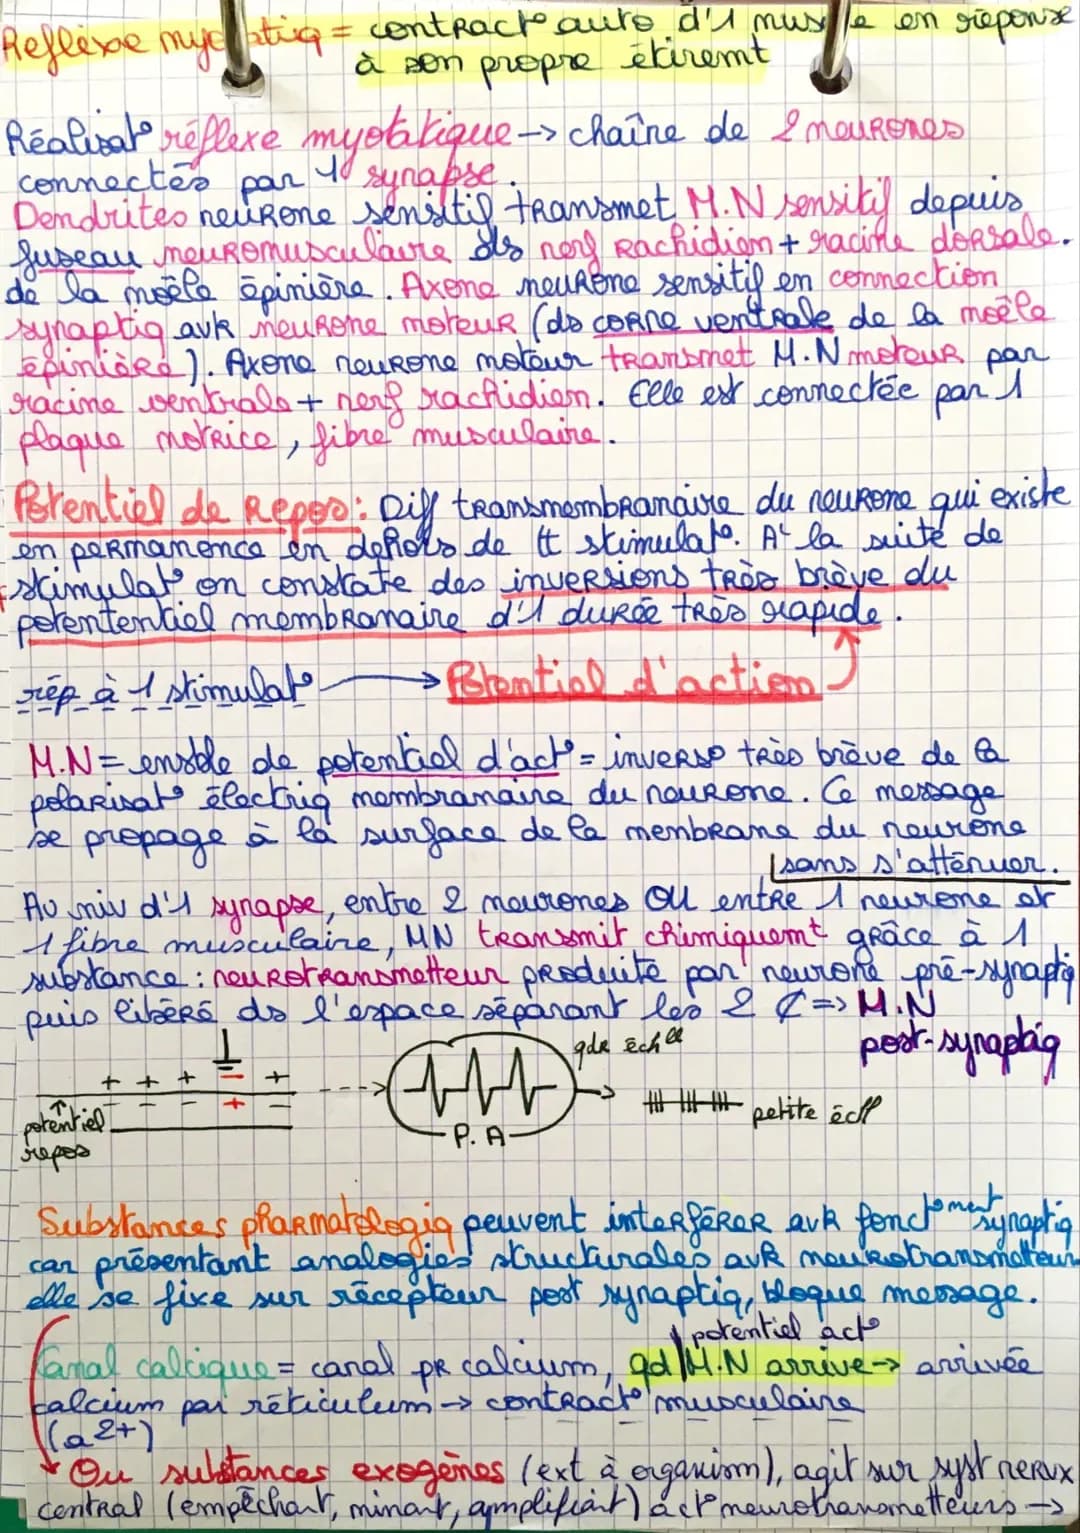 Réflexe myotatiq = contract° auto d'1 muscle en réponse
à son propre étiremt
Réalisat° réflexe myotatique -> chaîne de 2 neurones
connectés par 1 synapse.
Dendrites neurone sensitif transmet M.N sensitif depuis
fuseau neuromusculaire ds nerf rachidien + racine dorsale.
de la moële épinière. Axone neurone sensitif en connection
synaptiq avk neurone moteur (ds corne ventrale de la moële
épinière). Axone neurone moteur transmet M.N moteur par
racine ventrale + nerf rachidien. Elle est connectée par 1
plaque motrice, fibre musculaire.
Potentiel de Repos : Diff transmembranaire du neurone qui existe
en permanence en dehors de tt stimulat°. A la suite de
stimulat° on constate des inversions très brève du
potententiel membranaire d'1 durée très rapide.
rép à 1 stimulat° -> Potentiel d'action
M.N = ensble de potentiel d'act° = inverse très brève de la
polarisat° électriq membranaire du neurone. Ce message
se propage à la surface de la membrane du neurone
sans s'atténuer.
Au niv d'1 synapse, entre 2 neurones OU entre 1 neurone et
1 fibre musculaire, MN transmit chimiquemt grâce à 1
substance : neurotransmetteur produite par neurone pré-synaptiq
puis libéré ds l'espace séparant les 2 ₵ => M.N
post-synaptiq
gde éch
+ + + - +
- - - + -
potentiel
repos
P.A
petite éch
Substances pharmatologiq peuvent interférer avk fonct°ment synaptiq
car présentant analogies structurales avk neurotransmetteur
elle se fixe sur récepteur post synaptiq, bloque message.
potentiel act°
Canal calcique = canal pr calcium, qd M.N arrive -> arrivée
calcium par réticulum -> contract° musculaire
(a2+)
Ou substances exogènes (ext à organism), agit sur syst nerux
central (empêchant, minant, amplifiant) act° neurotransmetteurs ->